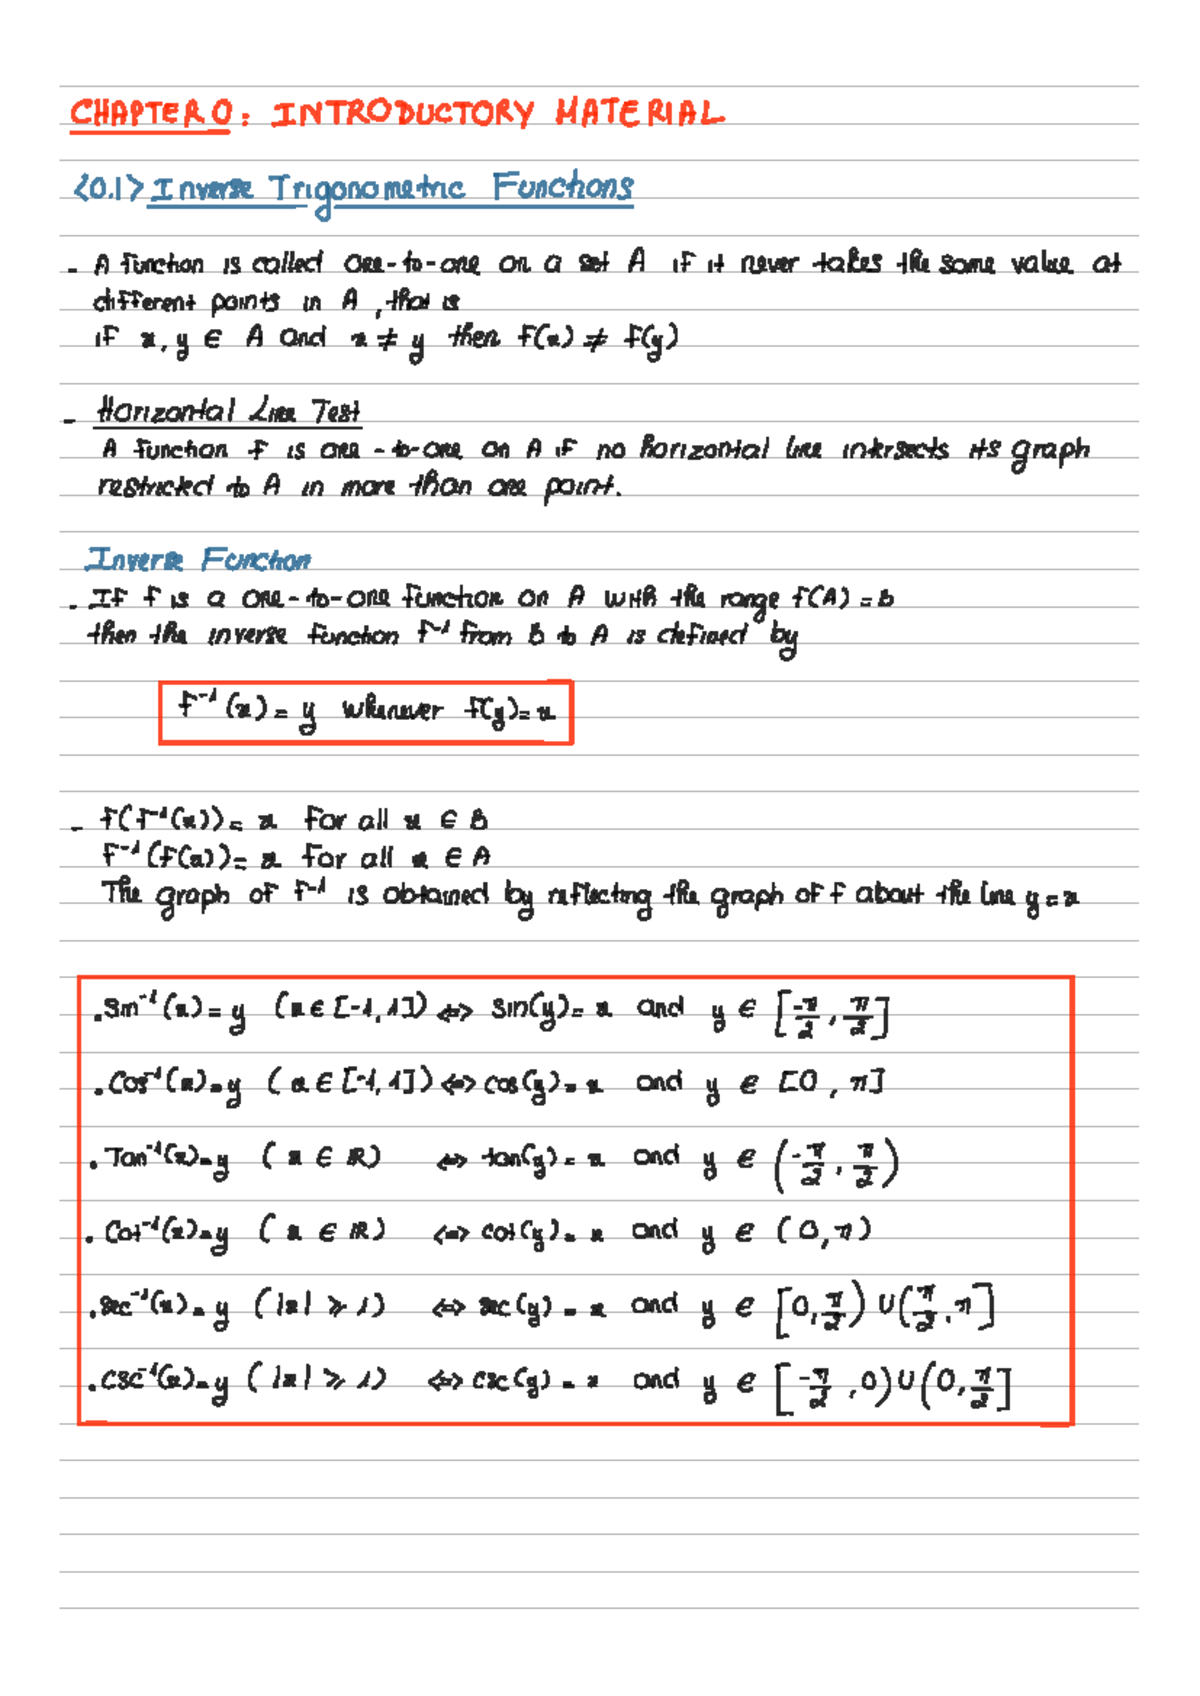 CHAPTER 0: INTRODUCTORY MATERIAL
<0.1> Inverse Trigonometric Functions
- A function is called one-to-one on a set A if it never takes the same value at
different points in A, that is
if x, y ∈ A and x ≠ y then f(x) ≠ f(y)
- Horizontal Line Test
A function f is one-to-one on A if no horizontal line intersects its graph
restricted to A in more than one point.
Inverse Function
- If f is a one-to-one function on A with the range f(A) = B
then the inverse function f⁻¹ from B to A is defined by
f⁻¹(x) = y whenever f(y) = x
- f(f⁻¹(x)) = x for all x ∈ B
f⁻¹(f(x)) = x for all x ∈ A
The graph of f⁻¹ is obtained by reflecting the graph of f about the line y = x
. Sin⁻¹(x) = y (x ∈ [-1, 1]) ⇔ sin(y) = x and y ∈ [-π/2, π/2]
. Cos⁻¹(x) = y (x ∈ [-1, 1]) ⇔ cos(y) = x and y ∈ [0, π]
. Tan⁻¹(x) = y (x ∈ ℝ) ⇔ tan(y) = x and y ∈ (-π/2, π/2)
. Cot⁻¹(x) = y (x ∈ ℝ) ⇔ cot(y) = x and y ∈ (0, π)
. sec⁻¹(x) = y (|x| ⩾ 1) ⇔ sec(y) = x and y ∈ [0, π/2) ∪ (π/2, π]
. csc⁻¹(x) = y (|x| ⩾ 1) ⇔ csc(y) = x and y ∈ [-π/2, 0) ∪ (0, π/2]